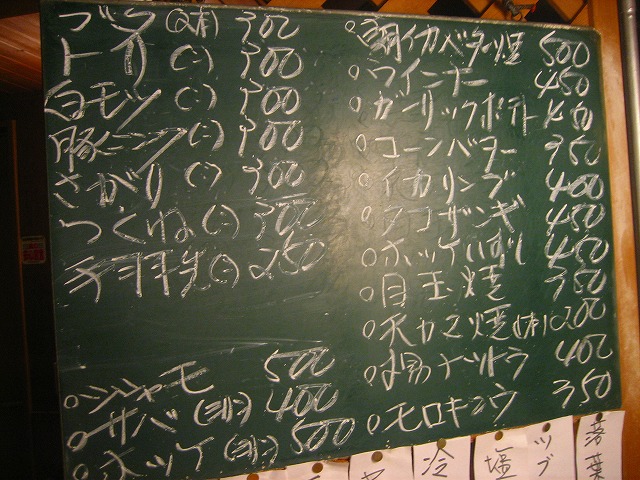 ブタ (2本) 300
トリ (〃) 300
白モツ (〃) 300
豚ニンニク (〃) 300
さがり (〃) 300
つくね (〃) 300
手羽先 (〃) 250
。シシャモ 500
。サバ (ヨリ) 400
。ホッケ (ヨリ) 500
。イカバター焼 500
。ウインナー 450
。ガーリックポテト 450
。コーンバター 350
。イカリング 400
。タコザンギ 450
。ホッケいずし 450
。目玉焼 350
。天カマ焼 (1本) 200
。納ナットウ 400
。モロキュウ 350
冷
塩
ツブ
落葉